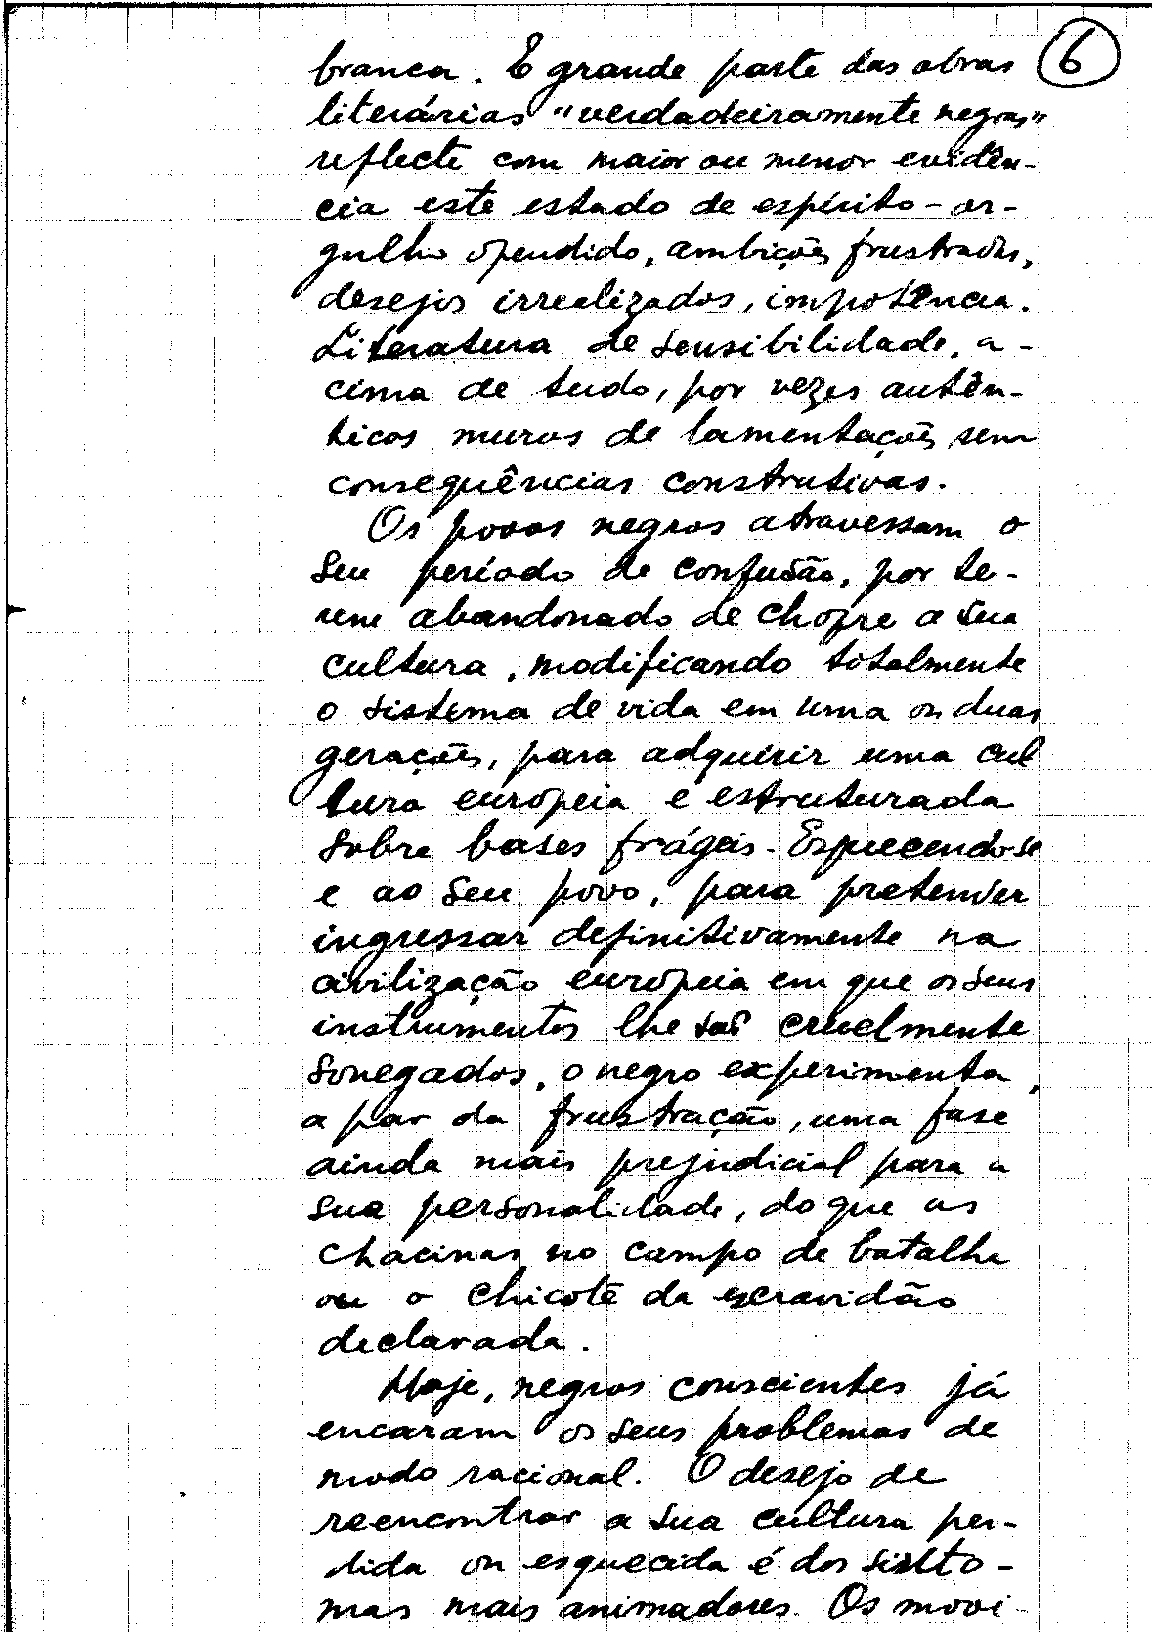 6
branca. E grande parte das obras
literárias "verdadeiramente negras"
reflecte com maior ou menor evidên-
cia este estado de espírito - or-
gulho ofendido, ambições frustradas,
desejos irrealizados, impotência.
Literatura de sensibilidade, a-
cima de tudo, por vezes autên-
ticos muros de lamentações sem
consequências construtivas.
Os povos negros atravessam o
seu período de confusão, por te-
rem abandonado de chofre a sua
cultura, modificando totalmente
o sistema de vida em uma ou duas
gerações, para adquirir uma cul
tura europeia e estruturada
sobre bases frágeis. Esquecendo-se
e ao seu povo, para pretender
ingressar definitivamente na
civilização europeia em que os seus
instrumentos lhe são cruelmente
sonegados, o negro experimenta,
a par da frustração, uma fase
ainda mais prejudicial para a
sua personalidade, do que as
chacinas no campo de batalha
ou o chicote da escravidão
declarada.
Hoje, negros conscientes já
encaram os seus problemas de
modo racional. O desejo de
reencontrar a sua cultura per-
dida ou esquecida é dos sinto-
mas mais animadores. Os movi-